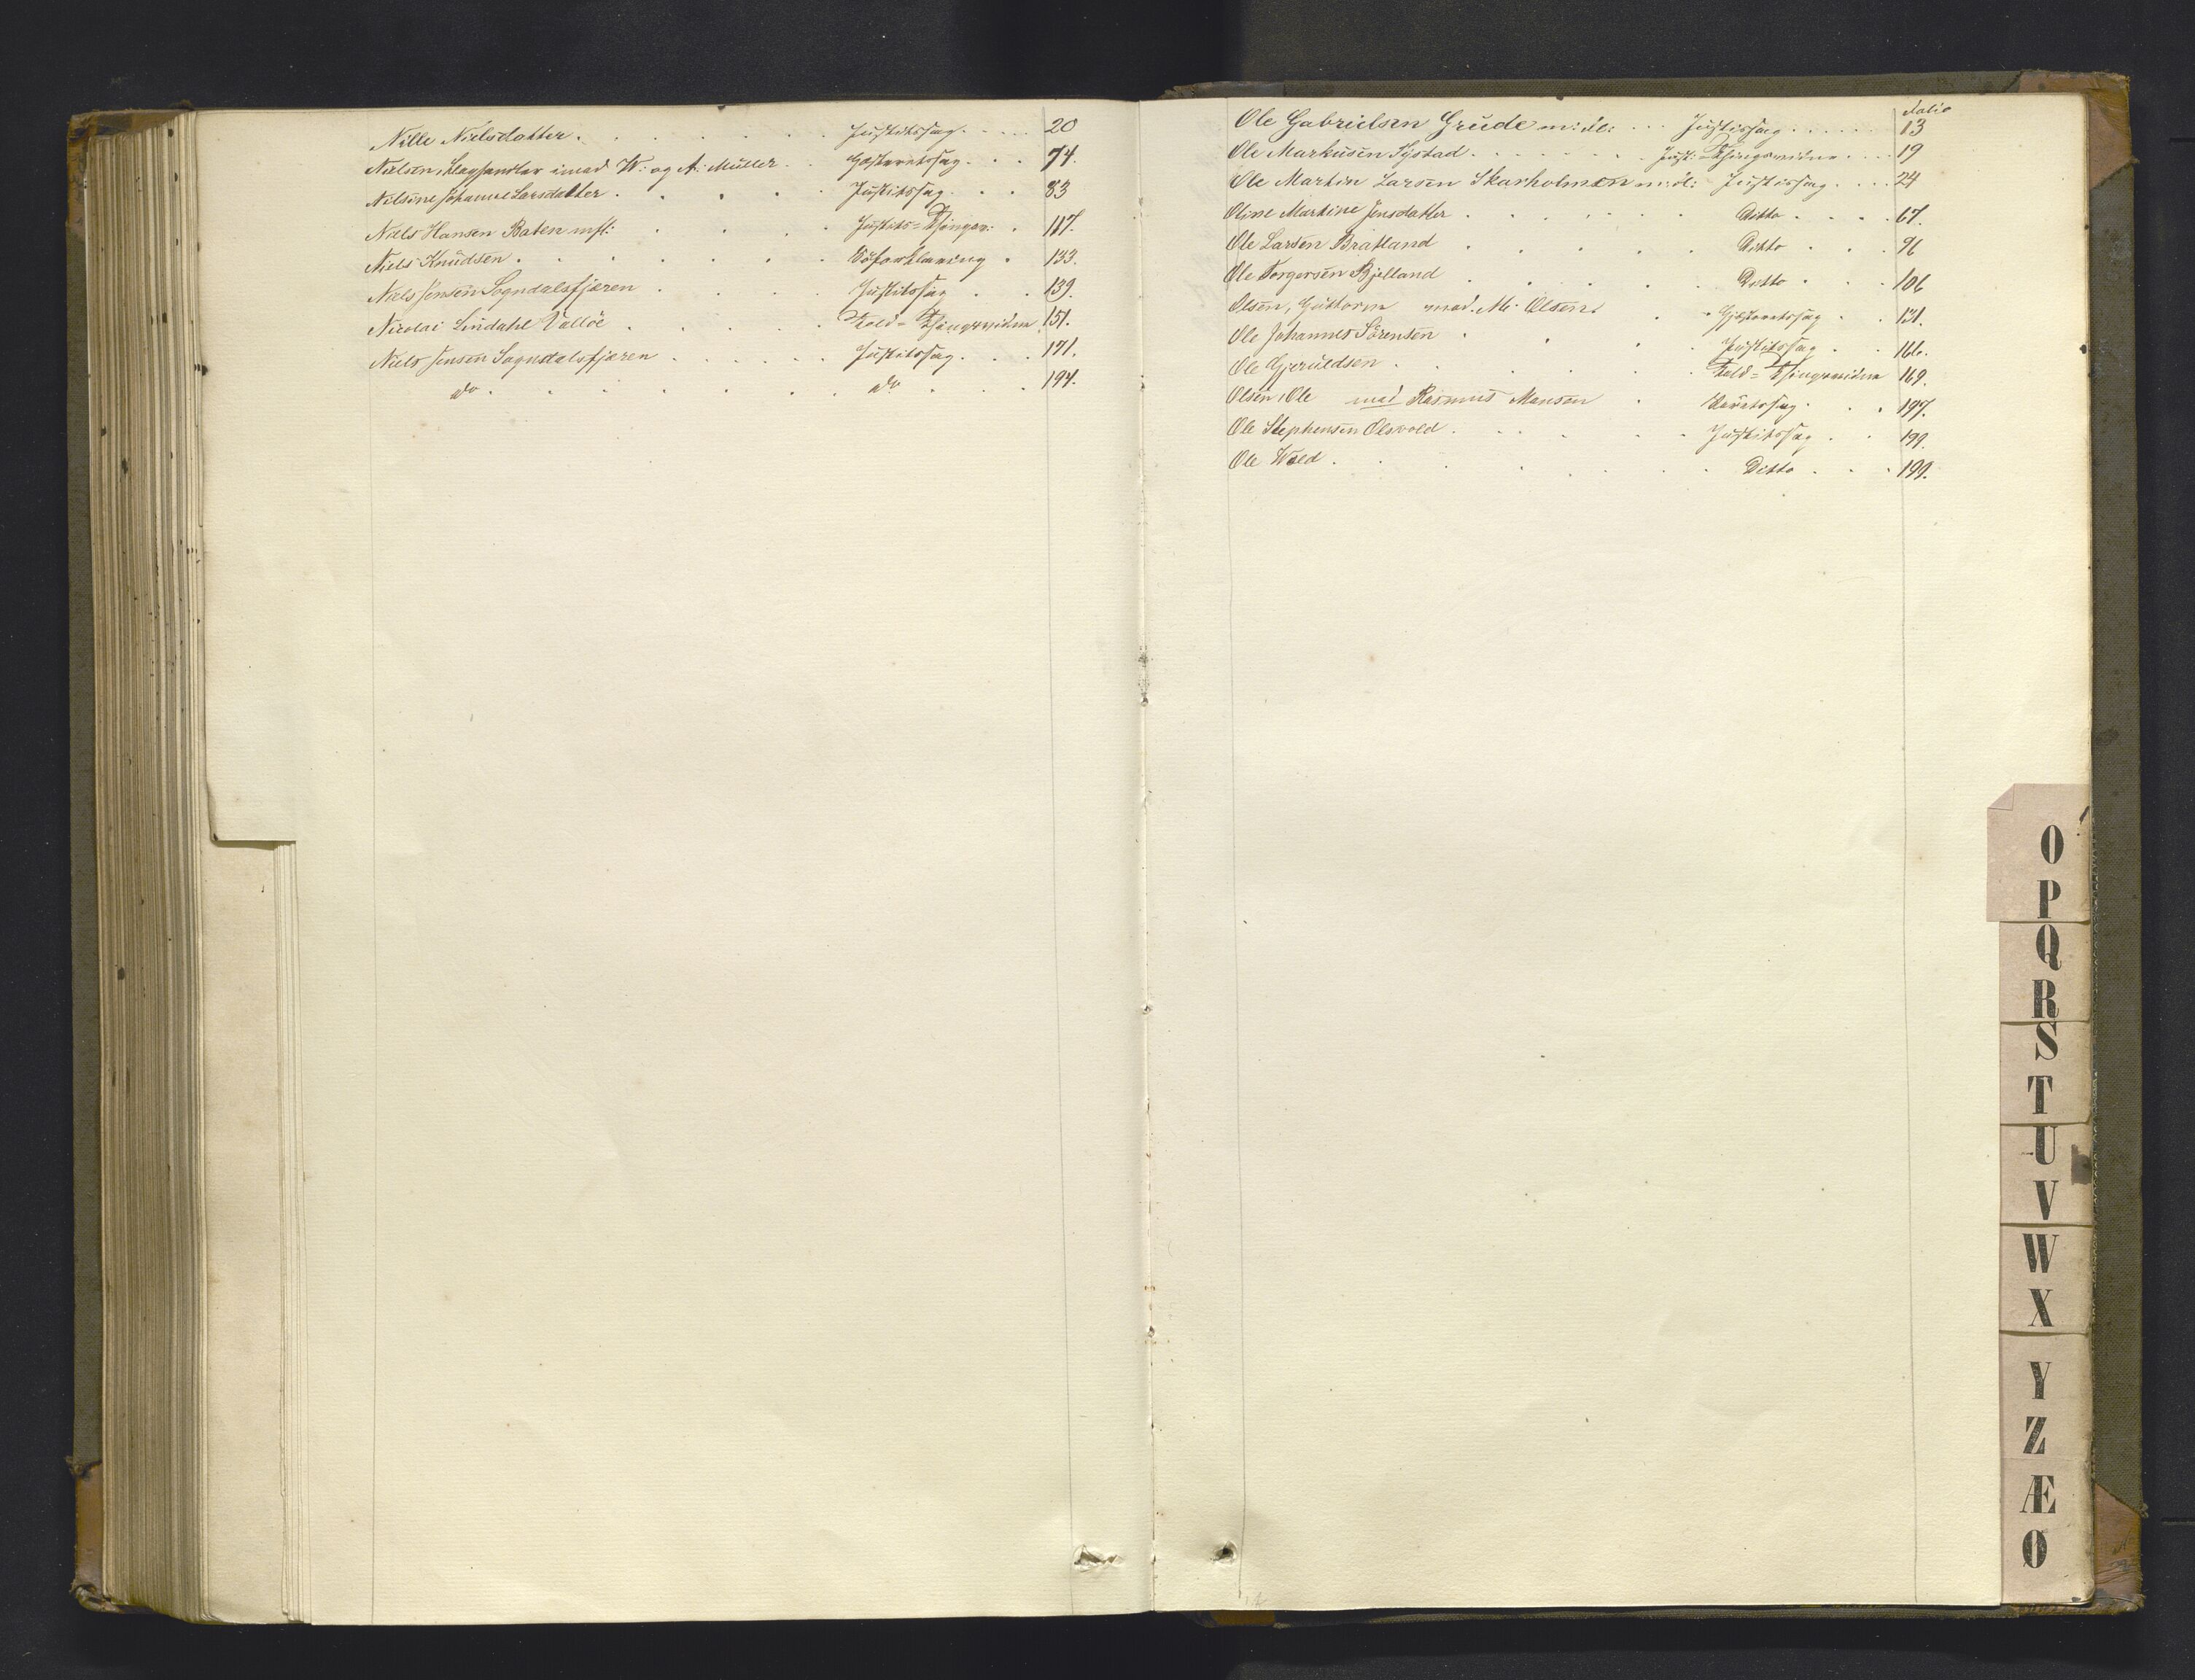 Nille Nielsdatter . . . . . . . Justitssag . . . . 20
Nielsen, imod W: og A: Müller . . Gjesteretssag . . . 74.
Nilsine Johanne Larsdatter . . . . Justitssag . . . 83
Niels Hansen Baten mfl: . . . Justits=Thingsv: . 117.
Niels Knudsen . . . . . . Söforklaring . 133.
Niels Jensen Sogndalsfjæren . . . . Justitssag . . 139.
Nicolai Lindahl Valløe . . . . Told=Thingsvidne 151.
Niels Jensen Sogndalsfjæren . . . . . . Justitssag . . . 171.
do . . . . . . . do . . . 194.
Folio
Ole Gabrielsen Grude m: fl: . . . Justissag . . . . . 13
Ole Markusen Systad . . . . . . . Just:=Thingsvidne . . . . 19
Ole Martin Larsen Skarholmen m: fl: Justissag . . . . 24
Oline Martine Jensdatter . . . . . . Ditto . . . . 67.
Ole Larsen Bratland . . . . . Ditto . . . 96
Ole Torgersen Bjelland . . . . . Ditto . . . 106
Olsen, Guttorm mod. M. Olsen . . Gjesteretssag . . 131.
Ole Johannes Sörensen . . . . . Justitssag . . 166.
Ole Gjeruldsen . . . . . . Told=Thingsvidne 169.
Olsen, Ole mod Rasmus Monsen . Søretssag . . . 197.
Ole Stephensen Olsvold . . . . . . Justitssag . . 199.
Ole Wold . . . . . . . Ditto . . . 199.
O
P
Q
R
S
T
U
V
W
X
Y
Z
Æ
Ø